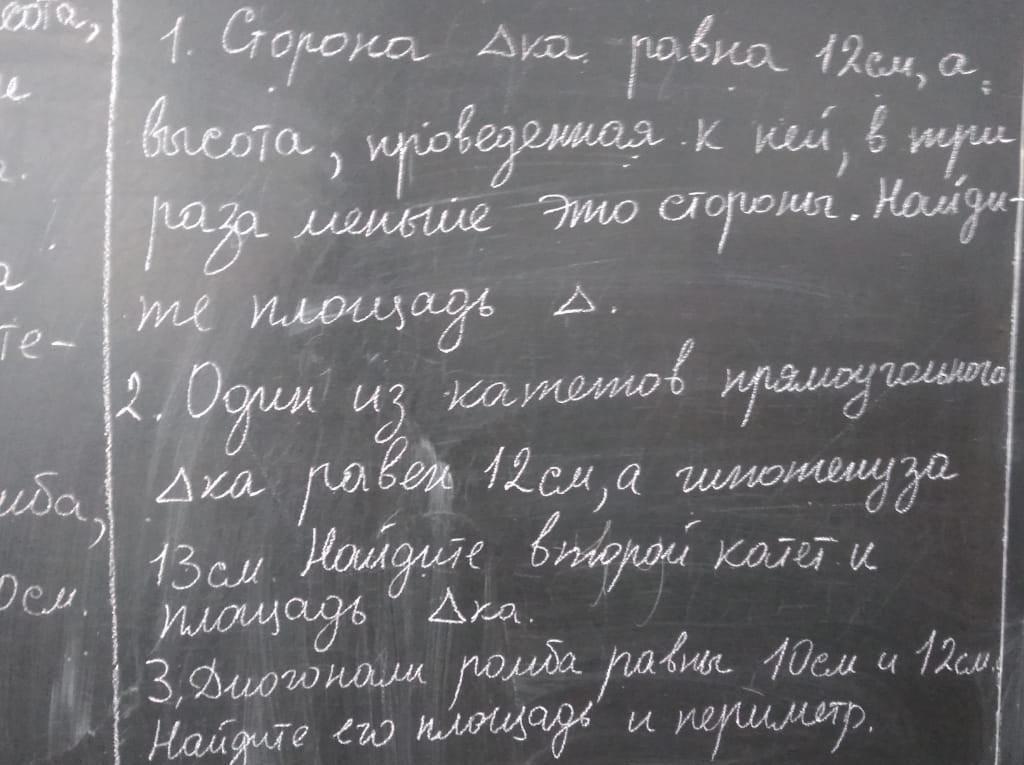 ота,
и
г.
а
те-
мба,
0см.
1. Сторона Δка равна 12см, а
высота, проведенная к ней, в три
раза меньше это стороны. Найди-
те площадь Δ.
2. Один из катетов прямоугольного
Δка равен 12см, а гипотенуза
13см Найдите второй катет и
площадь Δка.
3. Диогонали ромба равны 10см и 12см.
Найдите его площадь и периметр.